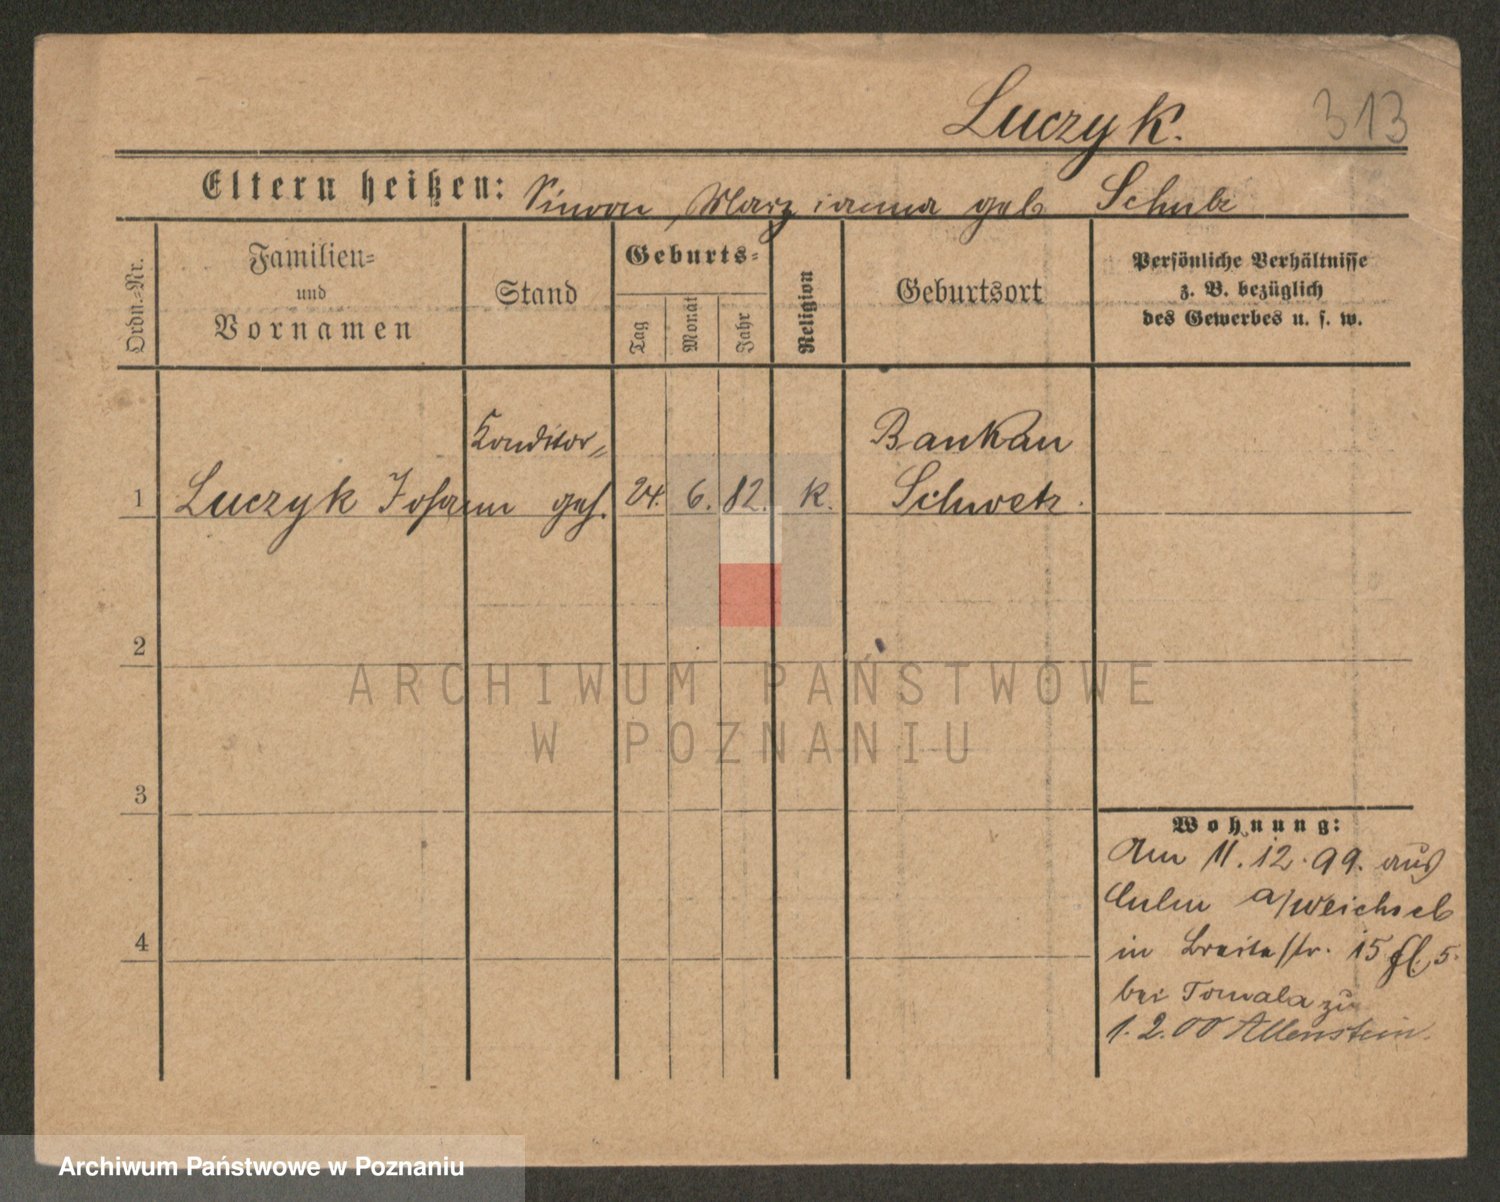 Luczyk.
313
Eltern heißen: Simon, Marzianna geb Schulz
Ordn.-Nr.
Familien-
und
Vornamen
Stand
Geburts-
Tag
Monat
Jahr
Religion
Geburtsort
Persönliche Verhältnisse
z. B. bezüglich
des Gewerbes u. s. w.
Konditor-
Bankau
1 Luczyk Johann geh. 24. 6. 82. K. Schwetz.
2
3
4
Wohnung:
Am 11.12.99. aus
Culm a/Weichsel
in Breitestr. 15 5.
bei Tomala zu
1.2.00 Allenstein.
ARCHIWUM PAŃSTWOWE
W POZNANIU
Archiwum Państwowe w Poznaniu